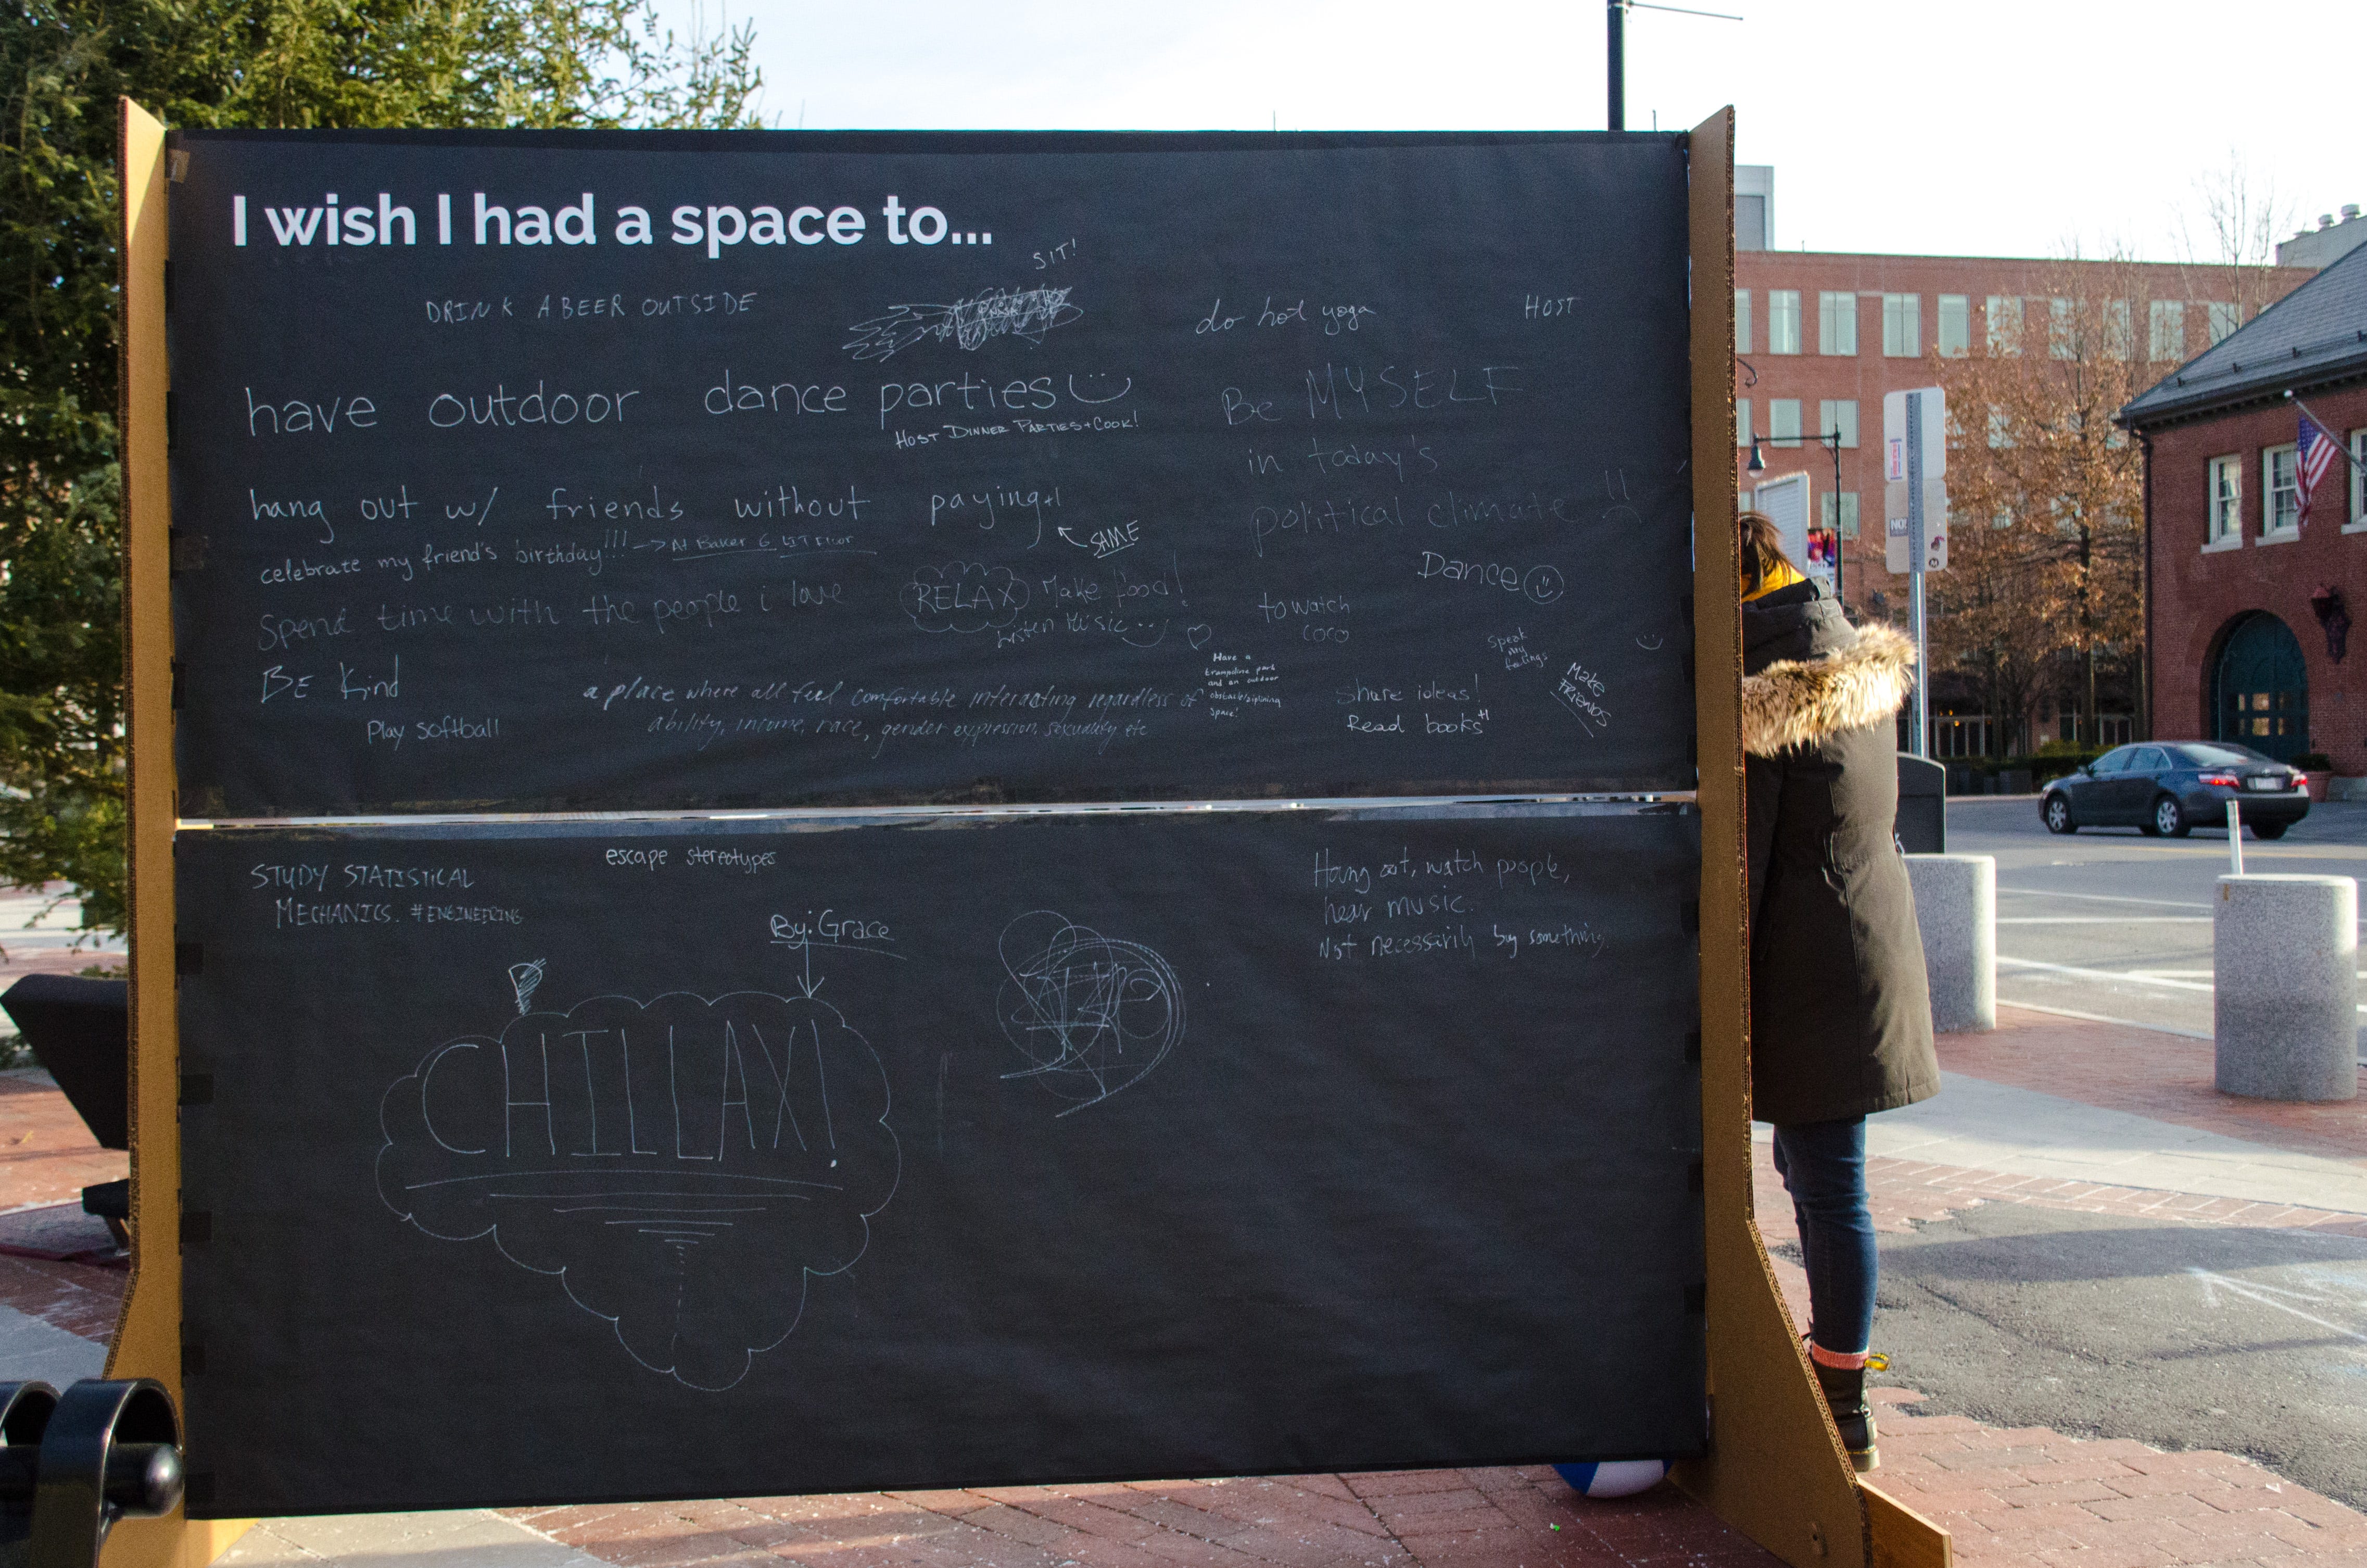 I wish I had a space to...
SIT!
DRINK A BEER OUTSIDE
do hot yoga
HOST
have outdoor dance parties
HOST DINNER PARTIES + COOK!
Be MYSELF
in today's
political climate
hang out w/ friends without paying +1
SAME
celebrate my friend's birthday!!! → At Baker 6
Dance
spend time with the people i love
RELAX
Make food!
Listen Music
to watch
coco
speak
my
feelings
BE Kind
Have a
trampoline park
and an outdoor
space!
Make
FRIENDS
a place where all feel comfortable interacting regardless of
ability, income, race, gender expression, sexuality etc
Share ideas!
Read books +1
Play softball
STUDY STATISTICAL
MECHANICS. #ENGINEERING
escape stereotypes
Hang out, watch people,
hear music.
Not necessarily buy something.
By: Grace
CHILLAX!
NO